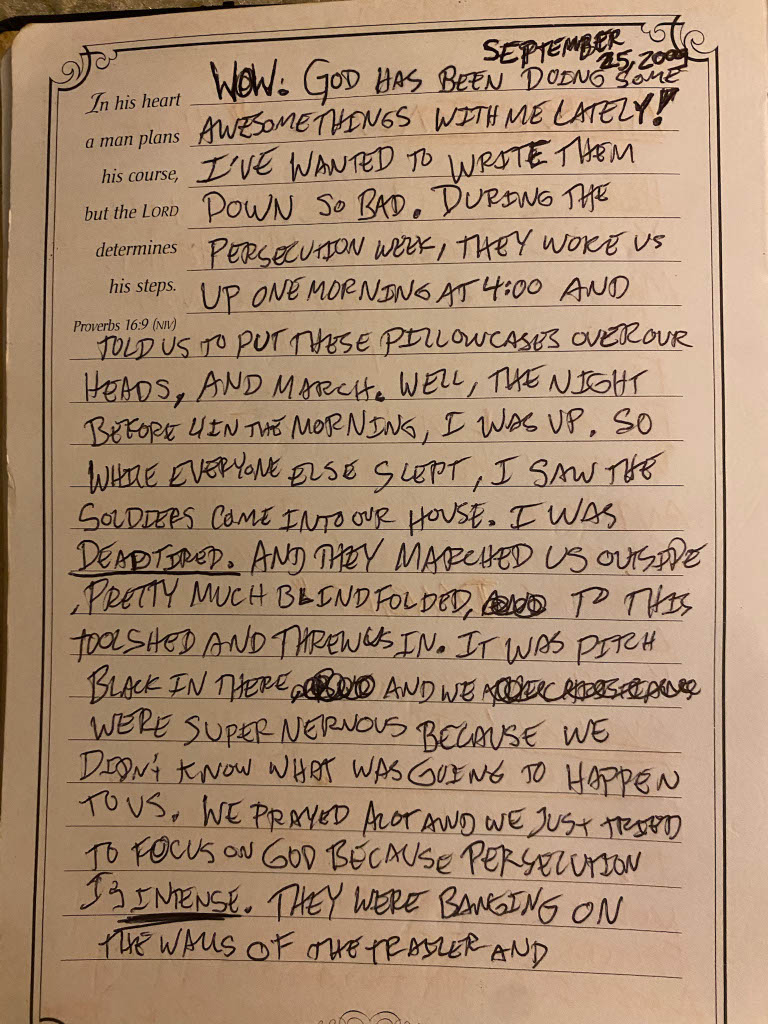 SEPTEMBER
25, 2009
WOW. GOD HAS BEEN DOING SOME
In his heart
AWESOME THINGS WITH ME LATELY!
a man plans
I'VE WANTED TO WRITE THEM
his course,
DOWN SO BAD. DURING THE
but the LORD
PERSECUTION WEEK, THEY WOKE US
determines
UP ONE MORNING AT 4:00 AND
his steps.
Proverbs 16:9 (NIV)
TOLD US TO PUT THESE PILLOWCASES OVER OUR
HEADS, AND MARCH. WELL, THE NIGHT
BEFORE 4 IN THE MORNING, I WAS UP. SO
WHILE EVERYONE ELSE SLEPT, I SAW THE
SOLDIERS COME INTO OUR HOUSE. I WAS
DEAD TIRED. AND THEY MARCHED US OUTSIDE
, PRETTY MUCH BLINDFOLDED, TO THIS
TOOLSHED AND THREW US IN. IT WAS PITCH
BLACK IN THERE, AND WE
WERE SUPER NERVOUS BECAUSE WE
DIDN'T KNOW WHAT WAS GOING TO HAPPEN
TO US. WE PRAYED ALOT AND WE JUST TRIED
TO FOCUS ON GOD BECAUSE PERSECUTION
IS INTENSE. THEY WERE BANGING ON
THE WALLS OF THE TRAILER AND